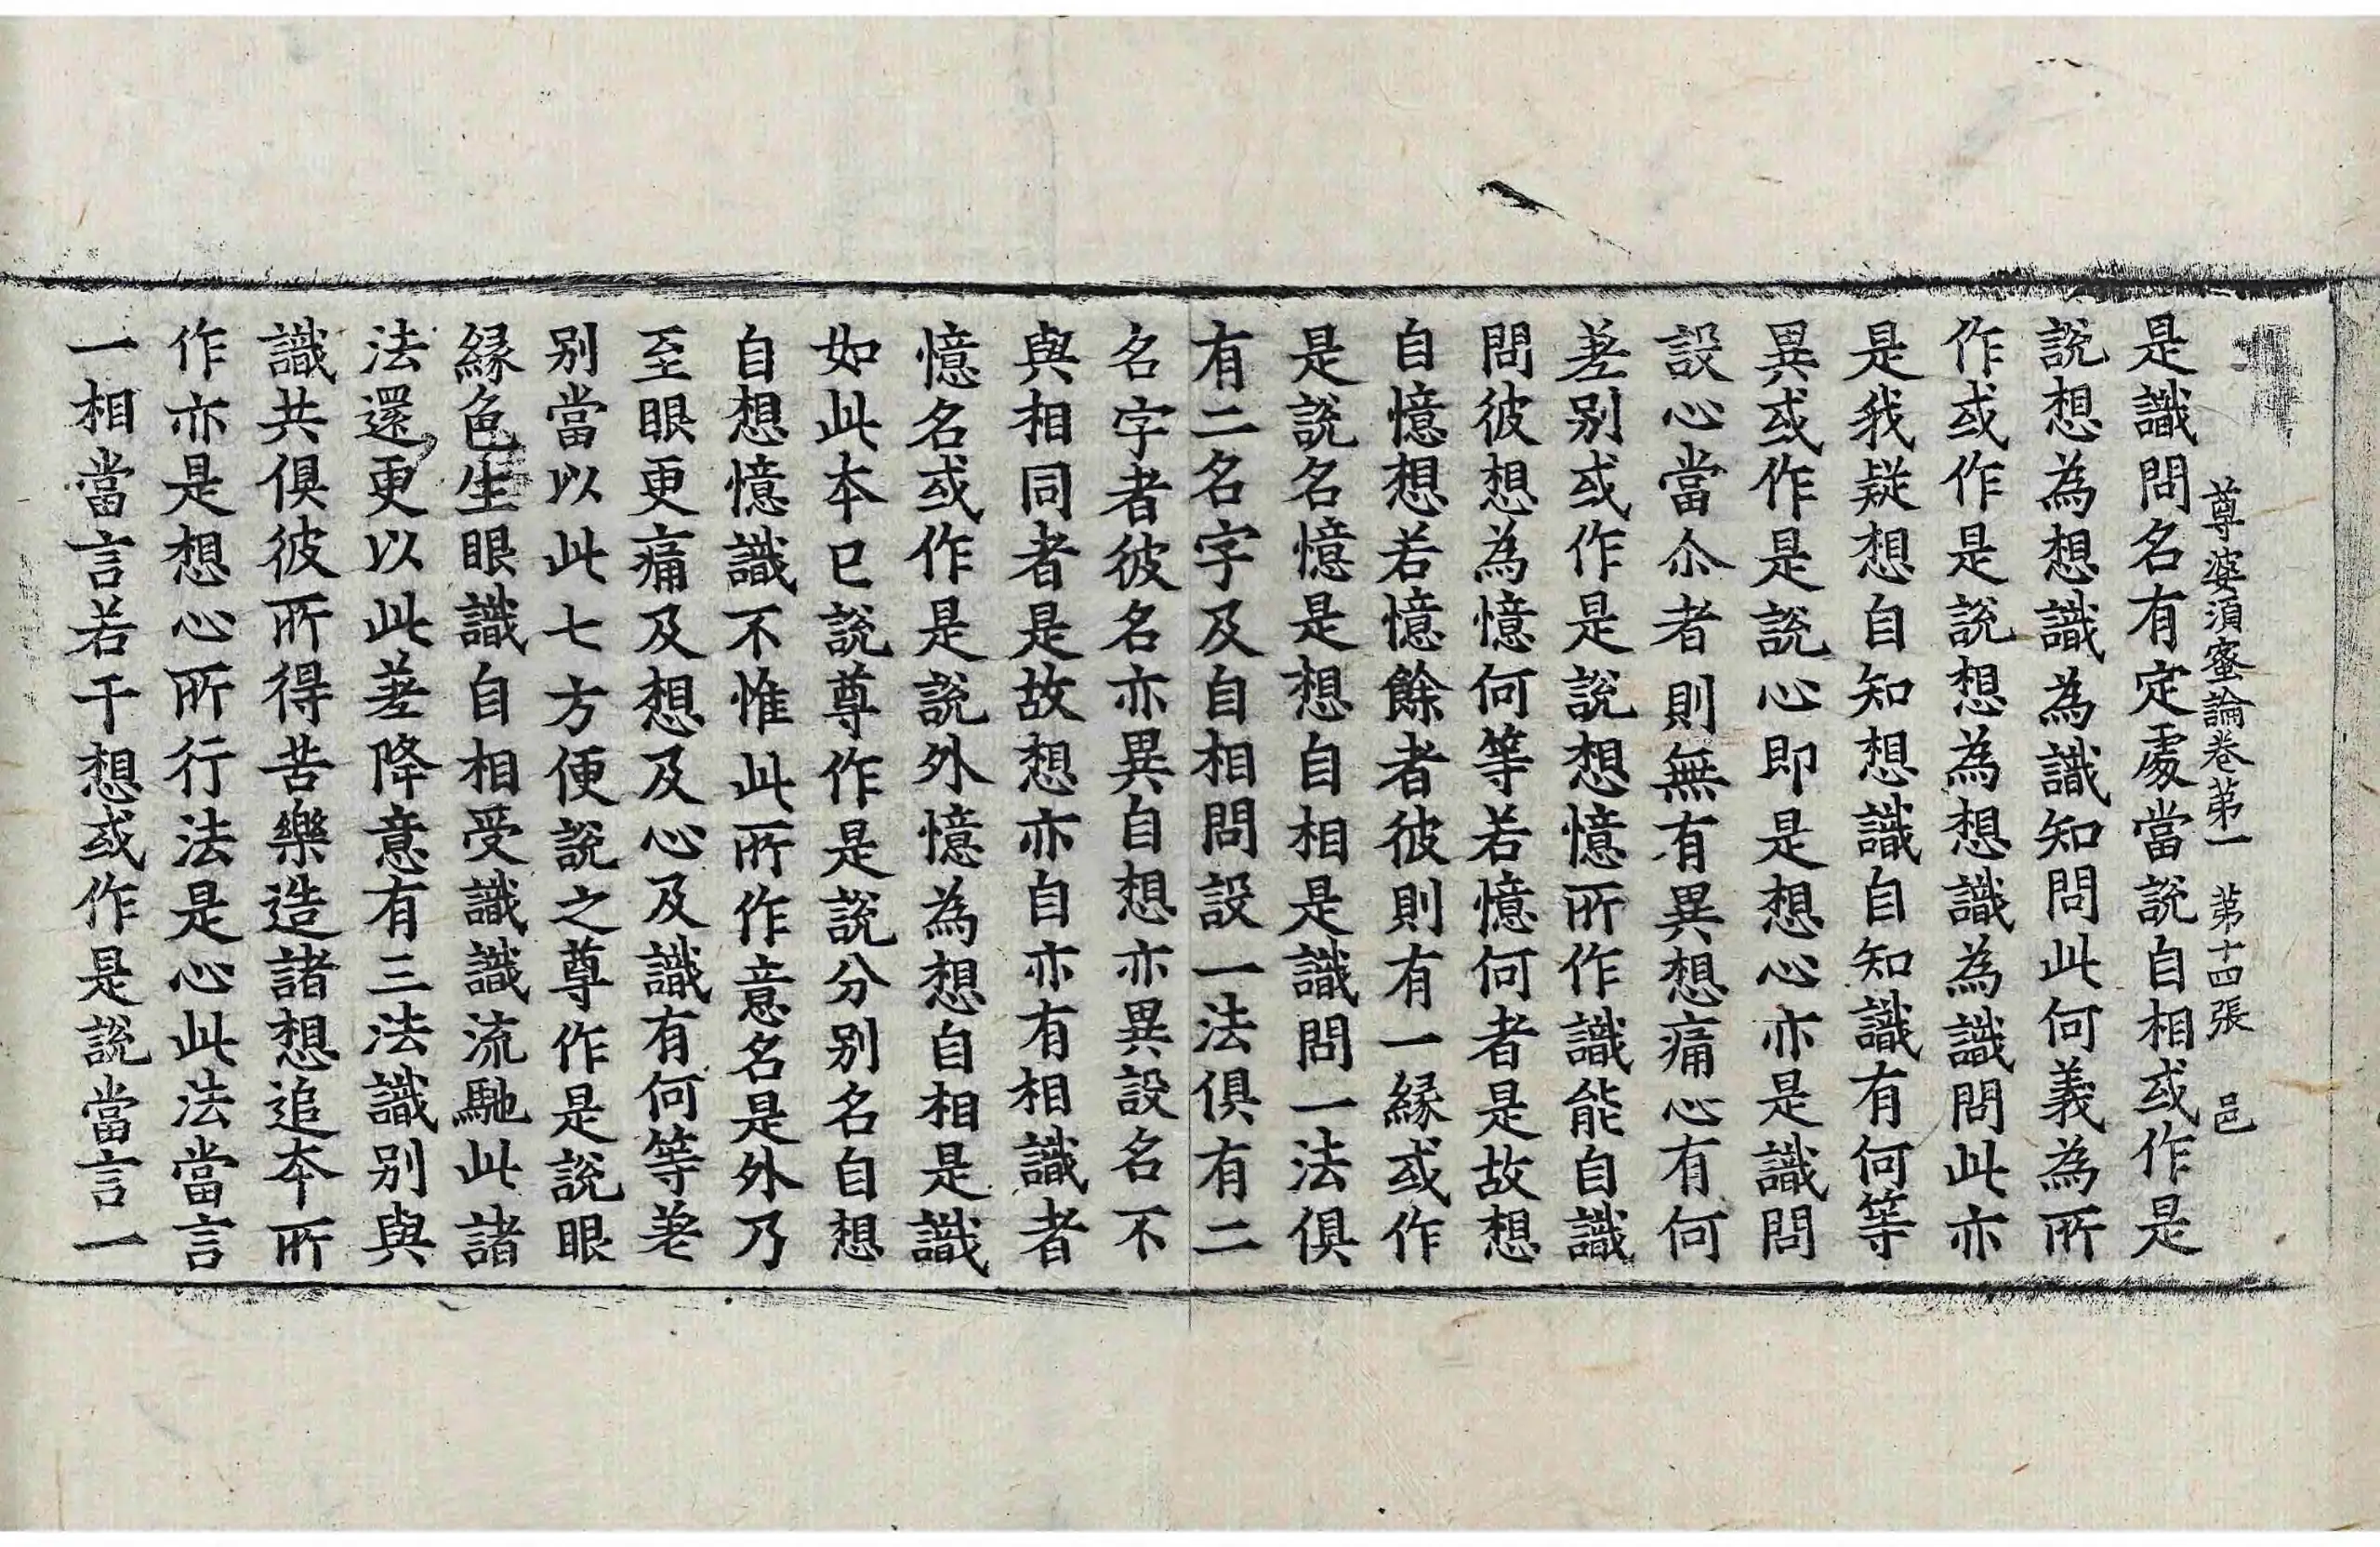 尊婆須蜜論卷第一 第十四張 邑
是識問名有定處當說自相或作是
說想為想識為識知問此何義為所
作或作是說想為想識為識問此亦
是我疑想自知想識自知識有何等
異或作是說心即是想心亦是識問
設心當尒者則無有異想痛心有何
差别或作是說想憶所作識能自識
問彼想為憶何等若憶何者是故想
自憶想若憶餘者彼則有一緣或作
是說名憶是想自相是識問一法俱
有二名字及自相問設一法俱有二
名字者彼名亦異自想亦異設名不
與相同者是故想亦自亦有相識者
憶名或作是說外憶為想自相是識
如此本已說尊作是說分别名自想
自想憶識不惟此所作意名是外乃
至眼更痛及想及心及識有何等差
别當以此七方便說之尊作是說眼
緣色生眼識自相受識識流馳此諸
法還更以此差降意有三法識别與
識共俱彼所得苦樂造諸想追夲所
作亦是想心所行法是心此法當言
一相當言若干想或作是說當言一